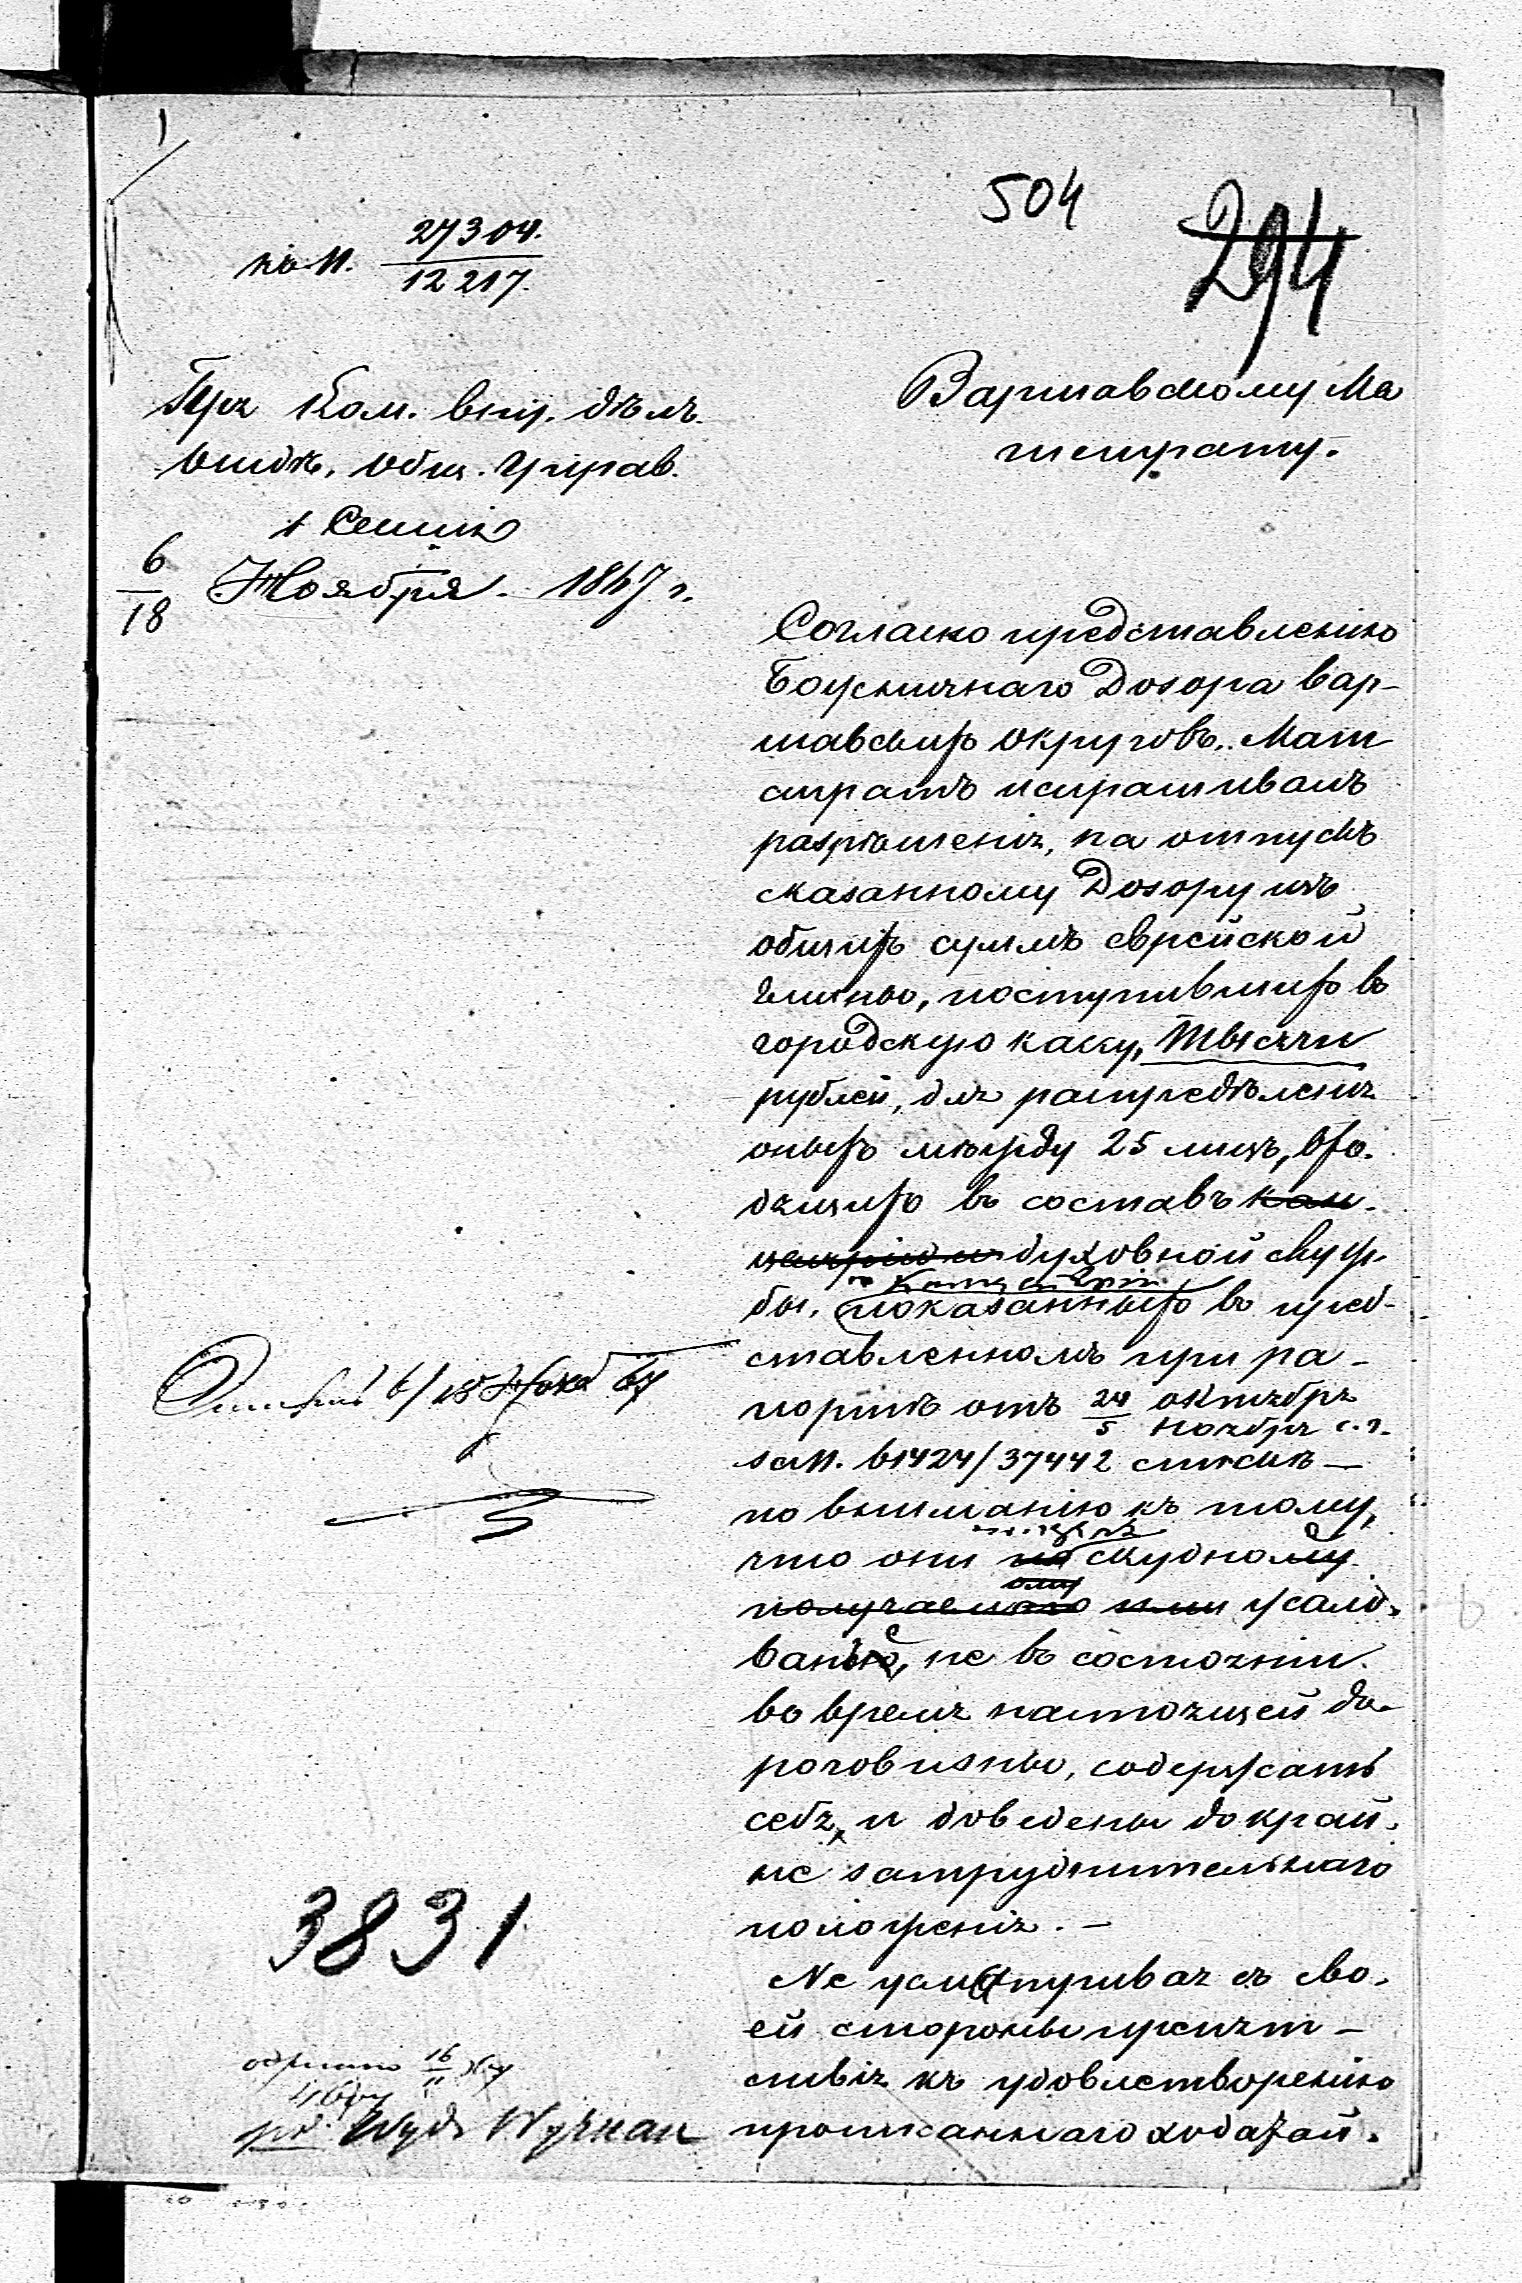 504
294
къ N. 27304.
12217.
Прав. Ком. вну. дѣлъ.
Отдѣ. общ. Управ.
1 Секція
6/18 Ноября. 1867 г.
Варшавскому Ма
гистрату.
Согласно представленію
Божничнаго Дозора вар-
шавскихъ округовъ, Маги
стратъ испрашивалъ
разрѣшенія, на отпускъ
сказанному Дозору изъ
общихъ суммъ еврейской
гмины, поступившихъ въ
городскую кассу, тысячи
рублей, для распредѣленія
оныхъ между 25 лицъ, вхо-
дящихъ въ составъ кан-
целяріи и духовной служ-
бы, и Канцеляріи
показанныхъ въ пред-
ставленномъ при ра-
портѣ отъ 24 октября
5 ноября с.г.
за N. 61424/37442 спискѣ —
по вниманію къ тому,
что они по скудному
получаемому ими жало-
ванье, не въ состояніи
во время настоящей до-
роговизны, содержать
себя, и доведены до край-
не затруднительнаго
положенія. —
Не усматривая съ сво-
ей стороны препят-
ствія къ удовлетворенію
прописаннаго ходатай-
6/18 67
3831
16/11